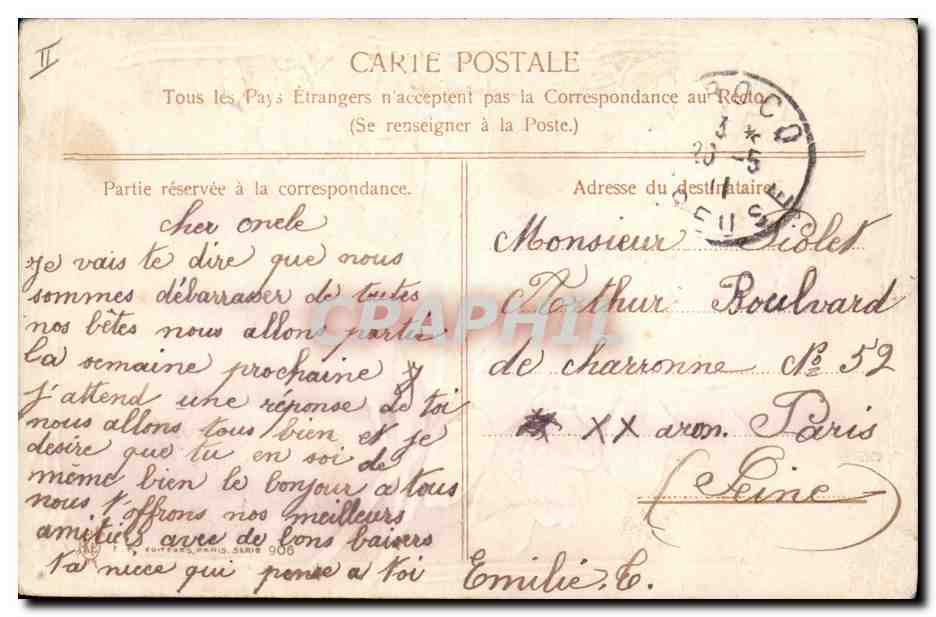 II
CARTE POSTALE
Tous les Pays Étrangers n'acceptent pas la Correspondance au Recto
(Se renseigner à la Poste.)
Partie réservée à la correspondance.
cher oncle
Je vais te dire que nous
sommes débarrasser de toutes
nos bêtes nous allons partir
la semaine prochaine
j'attend une réponse de toi
nous allons tous bien et je
désire que tu en soi de
même bien le bonjour a tous
nous t'offrons nos meilleurs
amitiers avec de bons baisers
ta niece qui pense a toi
Emilie. C.
E. EDITEURS, PARIS. SERIE 906
Adresse du destinataire
Monsieur Violet
Arthur Boulvard
de charronne No 52
XX aron. Paris
(Seine)
ROCQ
3 *
20 -5
11
OISE
CPARAMA